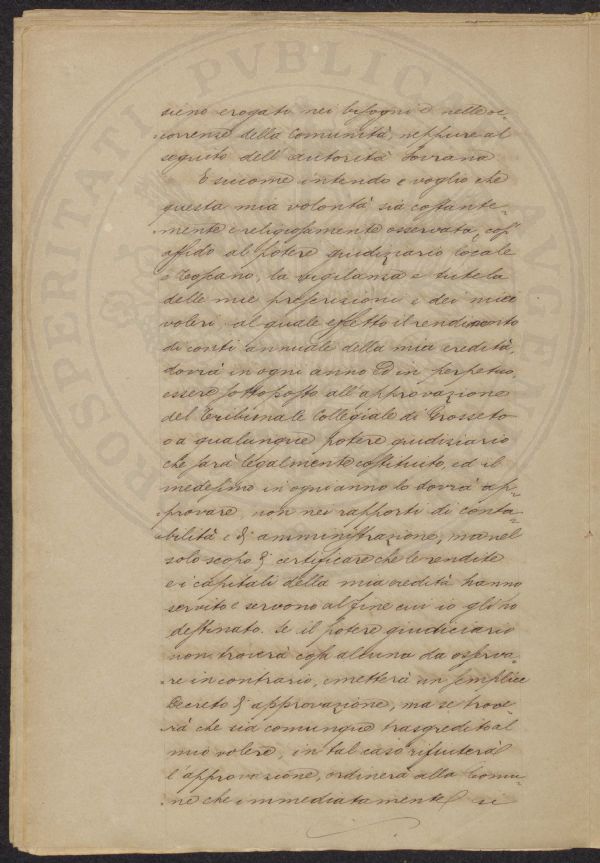 sieno erogati nei bisogni e nelle oc-
-correnze della Comunità, neppure al
seguito dell'autorità Sovrana
E siccome intendo e voglio che
questa mia volontà sia costante-
-mente e religiosamente osservata, così
affido al potere giudiziario locale
e Toscano, la vigilanza e tutela
delle mie prescrizioni e dei miei
voleri, al quale effetto il rendiconto
di conti annuale della mia eredità,
dovrà in ogni anno ed in perpetuo,
essere sottoposto all'approvazione
del Tribunale Collegiale di Grosseto
o a qualunque potere giudiziario
che sarà legalmente costituito, ed il
medesimo in ogni anno lo dovrà ap-
-provare, non nei rapporti di conta-
-bilità e di amministrazione, ma nel
solo scopo di certificare che le rendite
e i capitali della mia eredità hanno
servito e servono al fine cui io gli ho
destinato. Se il potere giudiciario
non troverà cosa alcuna da osserva-
-re in contrario, emetterà un semplice
Decreto di approvazione, ma se trove-
-rà che sia comunque trasgredito al
mio volere, in tal caso rifiuterà
l'approvazione, ordinerà alla Comu-
-ne che immediatamente si
PROSPERITATI PVBLICAE AVGENDAE